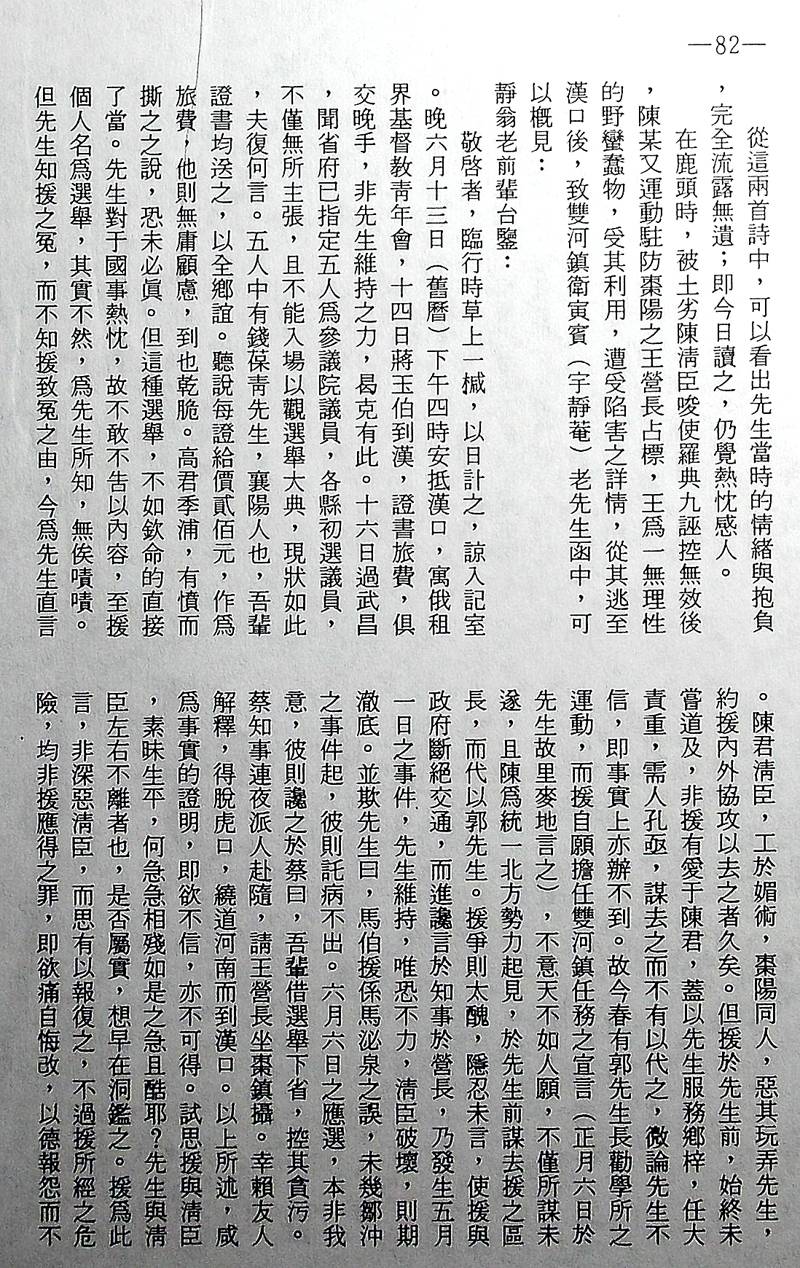 —82—
從這兩首詩中，可以看出先生當時的情緒與抱負
，完全流露無遺；即今日讀之，仍覺熱忱感人。
在鹿頭時，被土劣陳淸臣唆使羅典九誣控無效後
，陳某又運動駐防棗陽之王營長占標，王爲一無理性
的野蠻蠢物，受其利用，遭受陷害之詳情，從其逃至
漢口後，致雙河鎮衛寅賓（字靜菴）老先生函中，可
以概見：
靜翁老前輩台鑒：
敬啓者，臨行時草上一械，以日計之，諒入記室
。晚六月十三日（舊曆）下午四時安抵漢口，寓俄租
界基督敎靑年會，十四日蔣玉伯到漢，證書旅費，俱
交晚手，非先生維持之力，曷克有此。十六日過武昌
，聞省府已指定五人爲參議院議員，各縣初選議員，
不僅無所主張，且不能入場以觀選舉大典，現狀如此
，夫復何言。五人中有錢葆靑先生，襄陽人也，吾輩
證書均送之，以全鄉誼。聽說每證給價貳佰元，作爲
旅費，他則無庸顧慮，到也乾脆。高君季浦，有憤而
撕之之說，恐未必眞。但這種選舉，不如欽命的直接
了當。先生對于國事熱忱，故不敢不告以內容，至援
個人名爲選舉，其實不然，爲先生所知，無俟嘖嘖。
但先生知援之冤，而不知援致冤之由，今爲先生直言
。陳君淸臣，工於媚術，棗陽同人，惡其玩弄先生，
約援內外協攻以去之者久矣。但援於先生前，始終未
嘗道及，非援有愛于陳君，蓋以先生服務鄉梓，任大
責重，需人孔亟，謀去之而不有以代之，微論先生不
信，即事實上亦辦不到。故今春有郭先生長勸學所之
運動，而援自願擔任雙河鎮任務之宣言（正月六日於
先生故里麥地言之），不意天不如人願，不僅所謀未
遂，且陳爲統一北方勢力起見，於先生前謀去援之區
長，而代以郭先生。援爭則太醜，隱忍未言，使援與
政府斷絕交通，而進讒言於知事於營長，乃發生五月
一日之事件，先生維持，唯恐不力，淸臣破壞，則期
澈底。並欺先生曰，馬伯援係馬泌泉之誤，未幾鄒沖
之事件起，彼則託病不出。六月六日之應選，本非我
意，彼則讒之於蔡曰，吾輩借選舉下省，控其貪污。
蔡知事連夜派人赴隨，請王營長坐棗鎮攝。幸賴友人
解釋，得脫虎口，繞道河南而到漢口。以上所述，咸
爲事實的證明，即欲不信，亦不可得。試思援與淸臣
，素昧生平，何急急相殘如是之急且酷耶？先生與淸
臣左右不離者也，是否屬實，想早在洞鑑之。援爲此
言，非深惡淸臣，而思有以報復之，不過援所經之危
險，均非援應得之罪，即欲痛自悔改，以德報怨而不